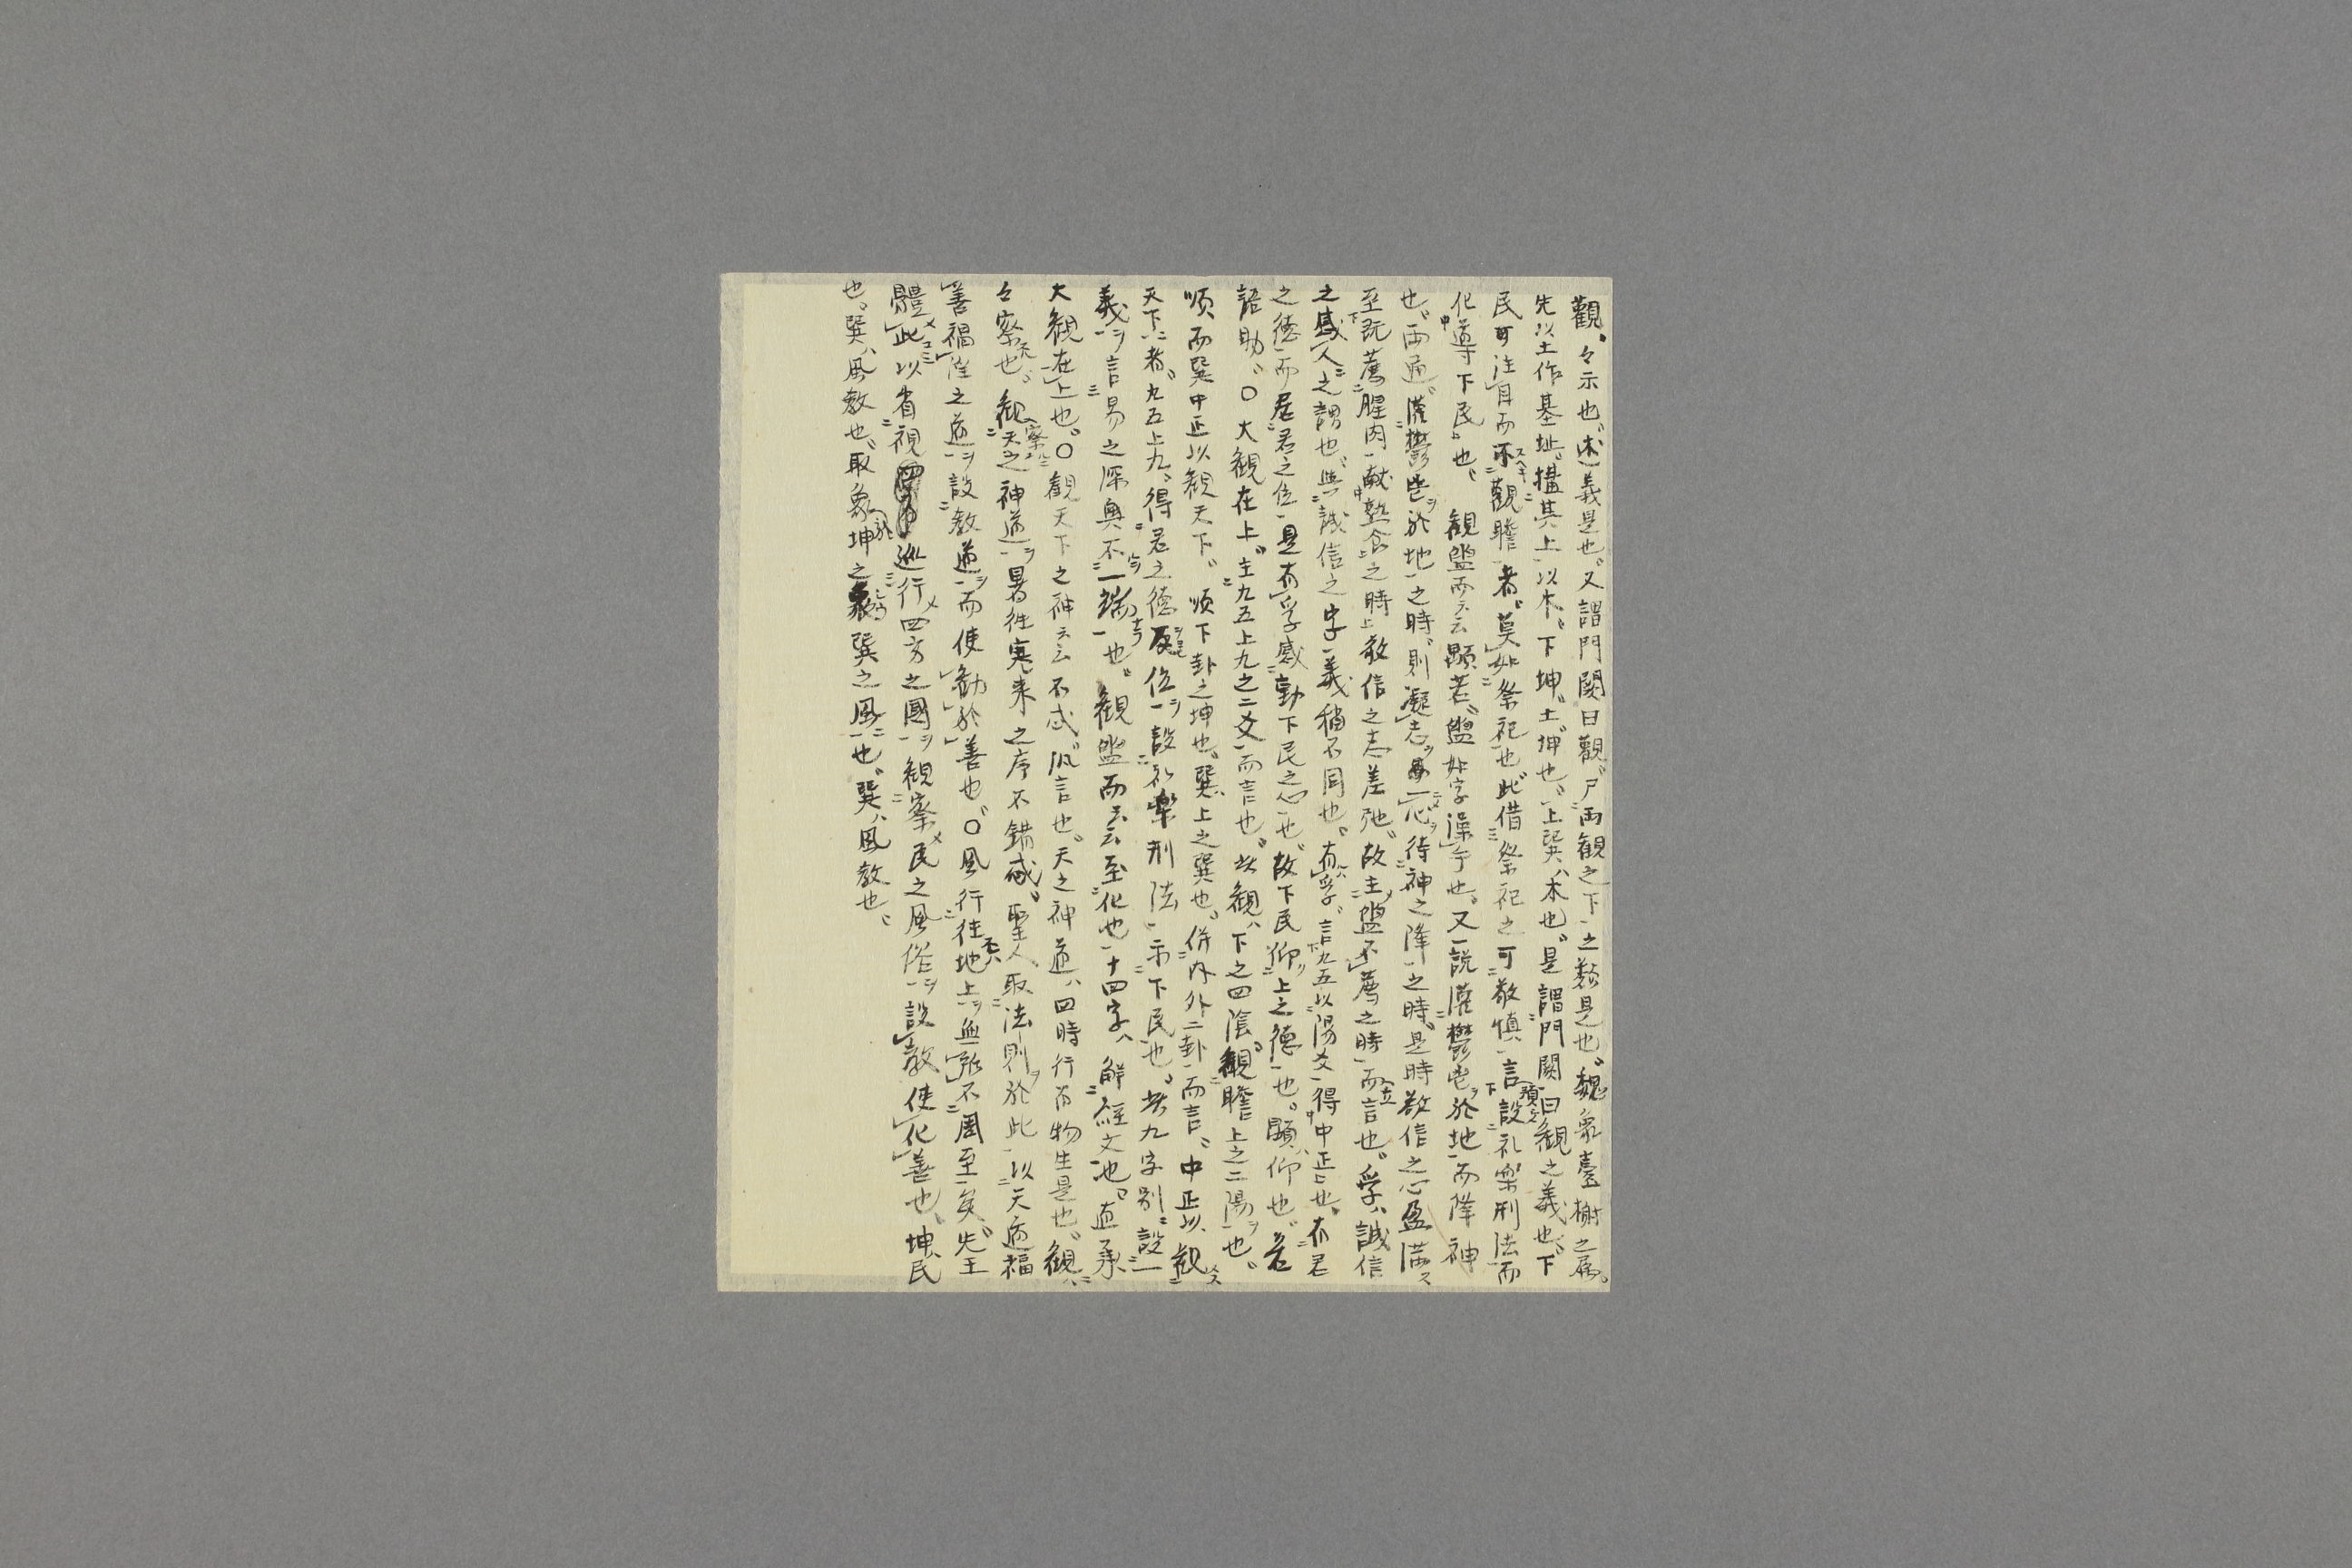 觀、々示也、述義是也。又謂門闕曰觀、尸両観之下之類是也。魏象臺榭之属。
先以土作基址、搆其上以木、下坤、土、坤也、上巽、木也。是謂門闕曰観之義也、下
民可注目而不觀瞻者、莫如祭祀也、此借祭祀之可敬慎言設礼樂刑法而
化導下民也、観盥而云云顒若、盥如字澡手也。又一説灌鬱鬯於地而降神
也。両通。灌鬱鬯於地之時、則凝志一心待神之降之時、是時敬信之心盈満
至既薦腥肉献熟食之時敬信之志差弛、故主盥不薦之時而言也。孚、誠信
之感人之謂也、與誠信之字義稍不同也。有孚、言九五以陽爻得中正也、有君
之徳而居君之位是有孚感動下民之心也、故下民仰上之德也。顒、仰也、若
語助、〇大観在上。主九五上九之二爻而言也、此観、下之四陰觀瞻上之二陽也。
順而巽中正以観天下。順下卦之坤也、巽、上之巽也。併内外二卦而言、中正以観
天下者、九五上九、得君之德履位設礼樂刑法示下民也、此九字別設一
義言易之深奥不一端也、觀盥而云云至化也十四字、解経文也。直承
大観在上也。〇観天下之神云云不忒、汎言也、天之神道、四時行百物生是也、観、
々察也、観天之神道暑往寒来之序不錯忒。聖人取法則於此以天道福
善禍淫之道設教道而使勧於善也、〇風行往地上無所不周至矣。先王
體此以省視巡行四方之國観察民之風俗設教使化善也、坤、民
也。巽、風教也、取象坤之象巽之風也、巽、風教也、